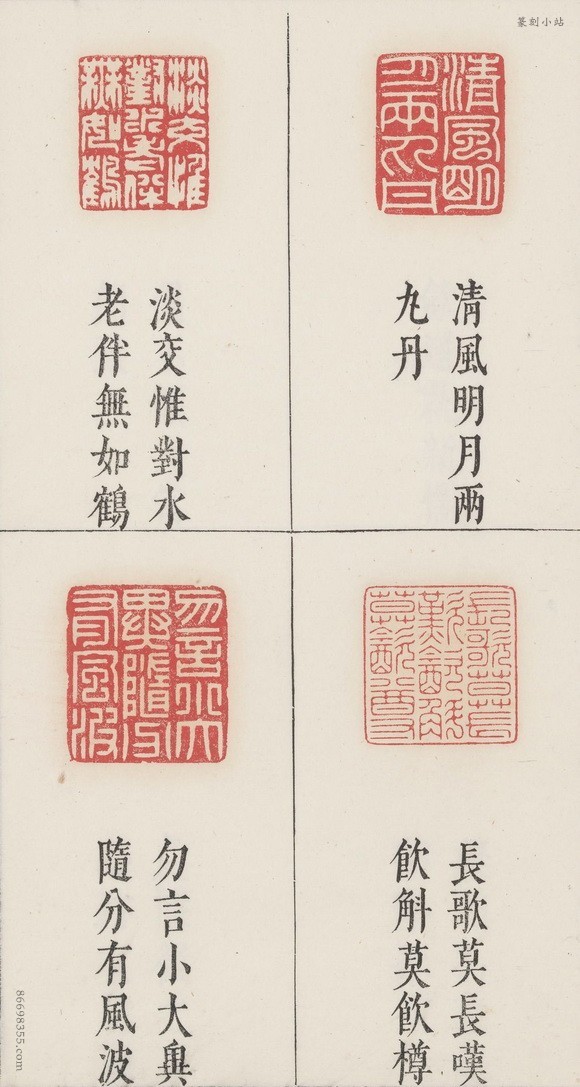 篆刻小站
清風明月兩
丸丹
淡交惟對水
老伴無如鶴
長歌莫長嘆
飲斛莫飲樽
勿言小大異
隨分有風波
86698355.com